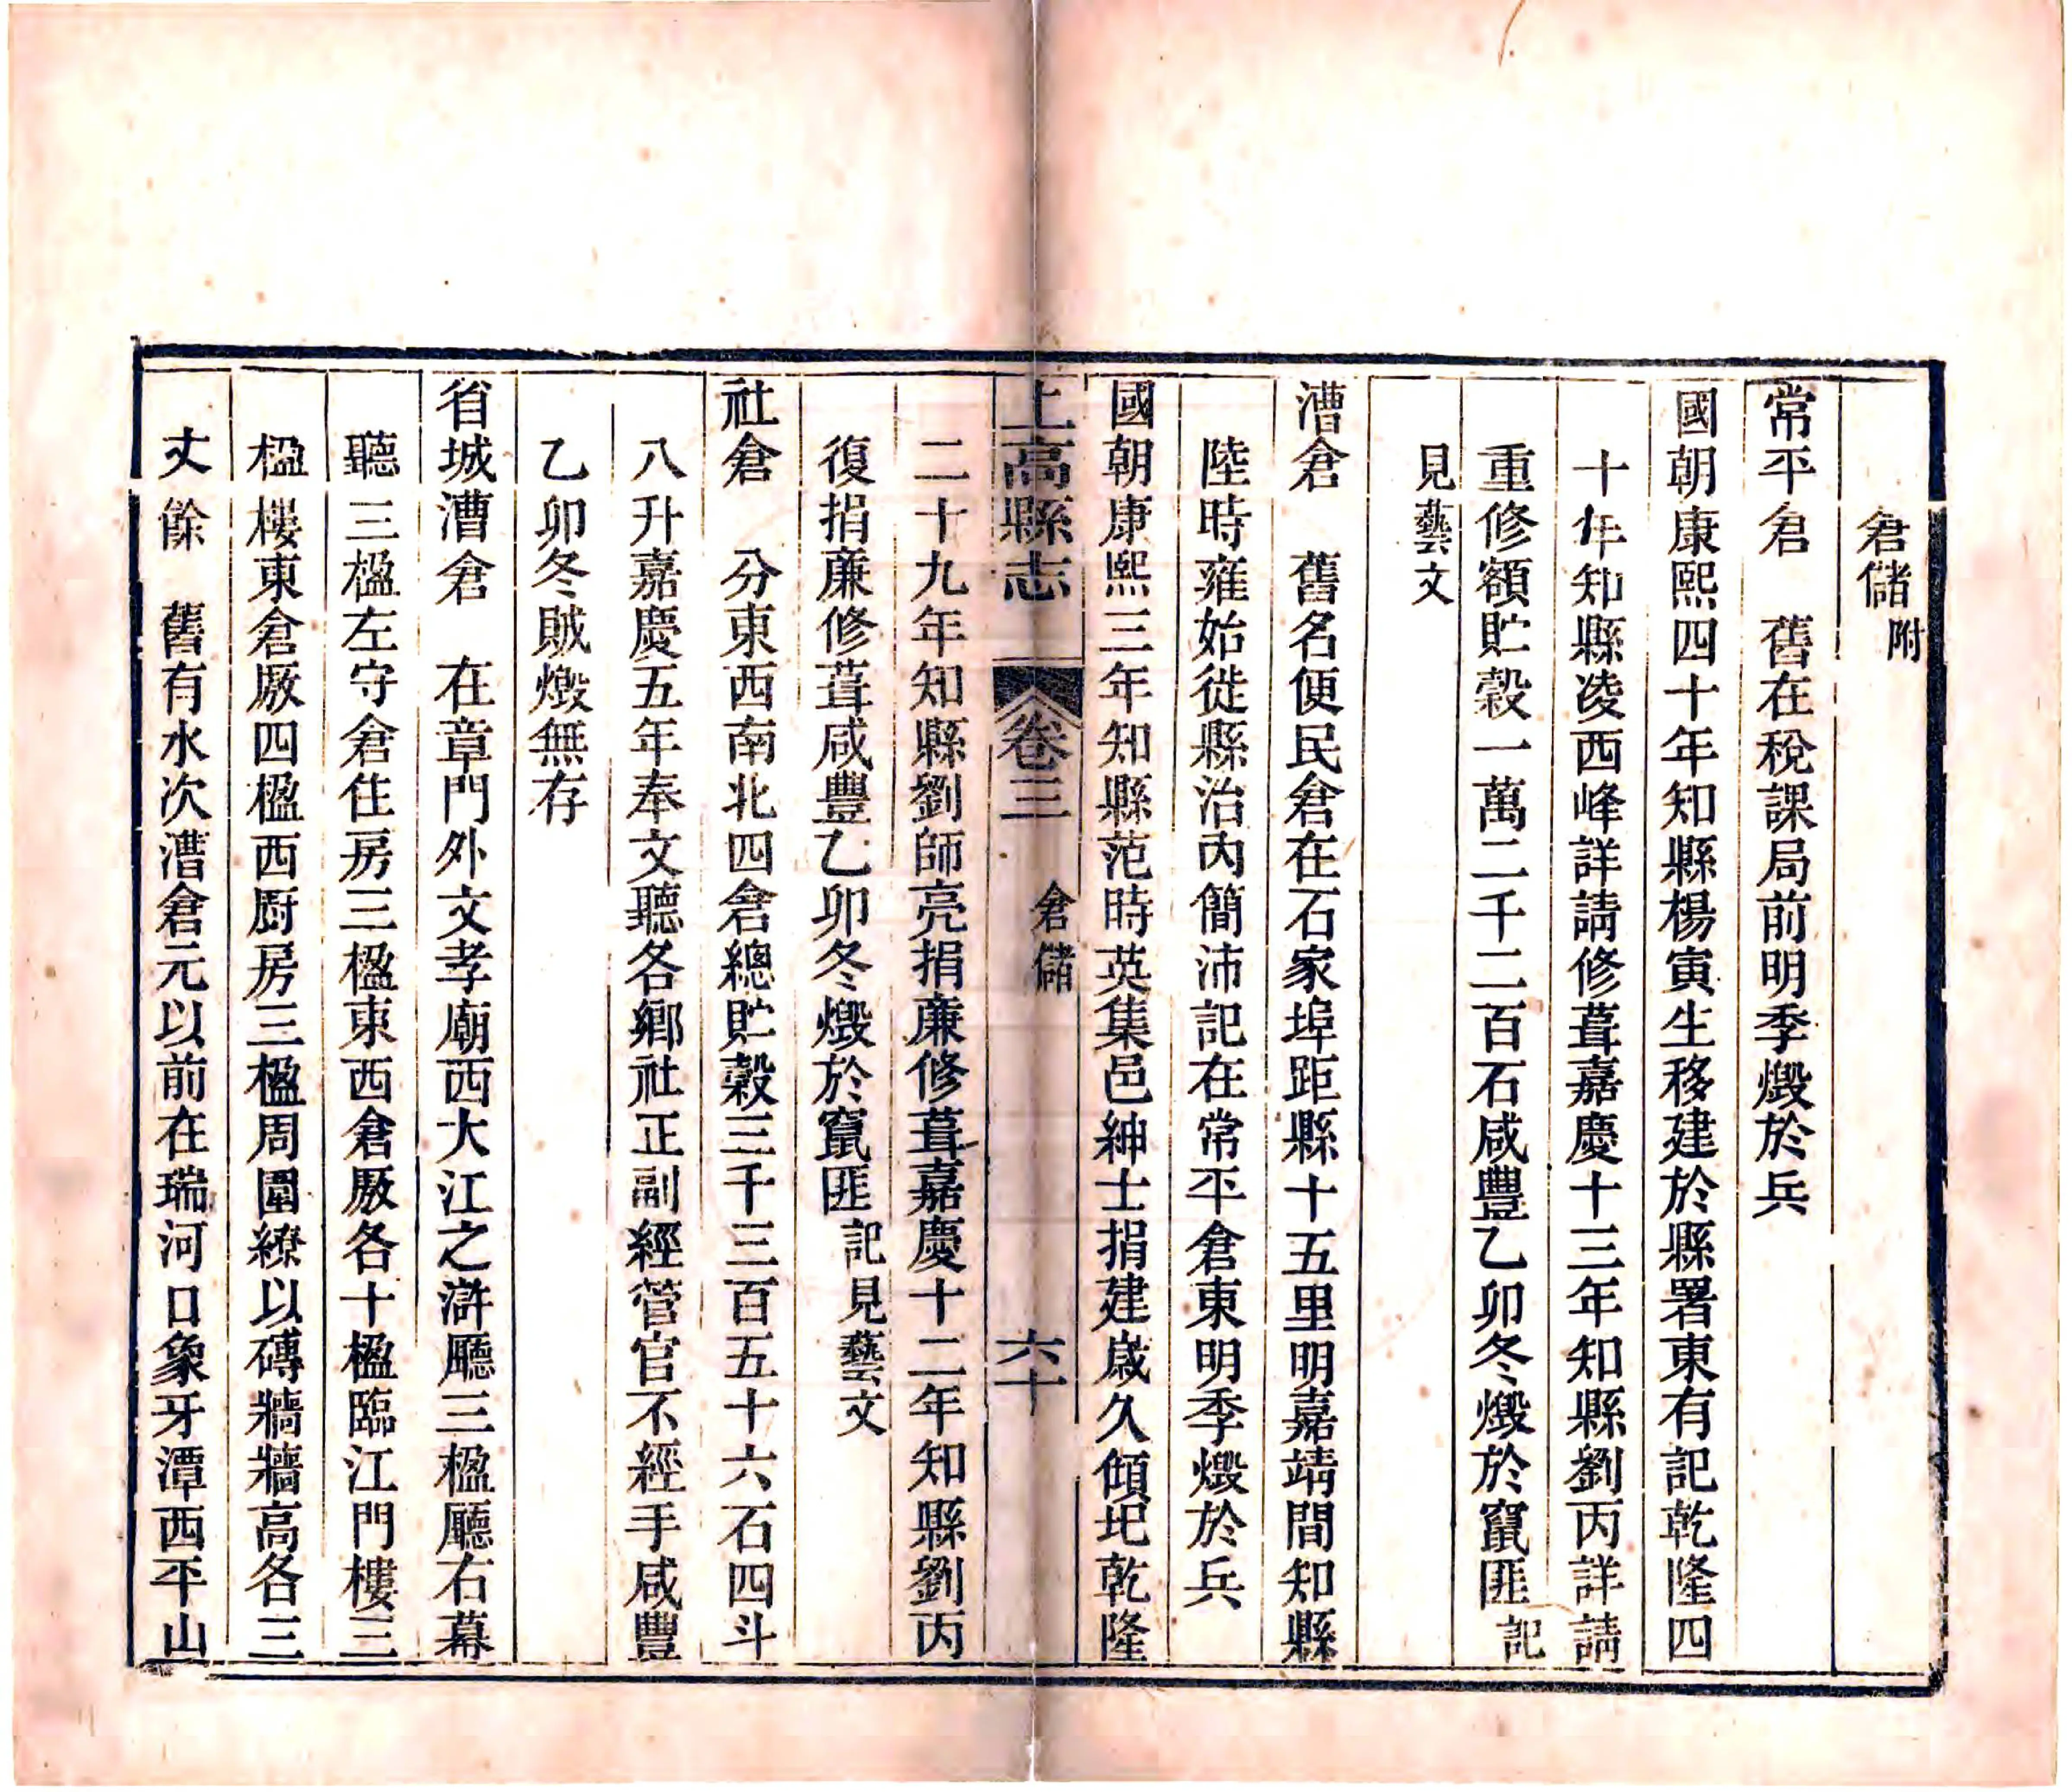 倉儲附
常平倉　舊在稅課局前明季燬於兵
國朝康熙四十年知縣楊寅生移建於縣署東有記乾隆四
十年知縣凌西峰詳請修葺嘉慶十三年知縣劉丙詳請
重修額貯穀一萬二千二百石咸豐乙卯冬燬於竄匪記
見藝文
漕倉　舊名便民倉在石家埠距縣十五里明嘉靖間知縣
陸時雍始徙縣治內簡沛記在常平倉東明季燬於兵
國朝康熙三年知縣范時英集邑紳士捐建歲久傾圮乾隆
上高縣志　卷三　倉儲　六十
二十九年知縣劉師亮捐廉修葺嘉慶十二年知縣劉丙
復捐廉修葺咸豐乙卯冬燬於竄匪記見藝文
社倉　分東西南北四倉總貯穀三千三百五十六石四斗
八升嘉慶五年奉文聽各鄉社正副經管官不經手咸豐
乙卯冬賊燬無存
省城漕倉　在章門外文孝廟西大江之滸廳三楹廳右幕
聽三楹左守倉住房三楹東西倉厫各十楹臨江門樓三
楹樓東倉厫四楹西廚房三楹周圍繚以磚牆牆高各三
丈餘　舊有水次漕倉元以前在瑞河口象牙潭西平山